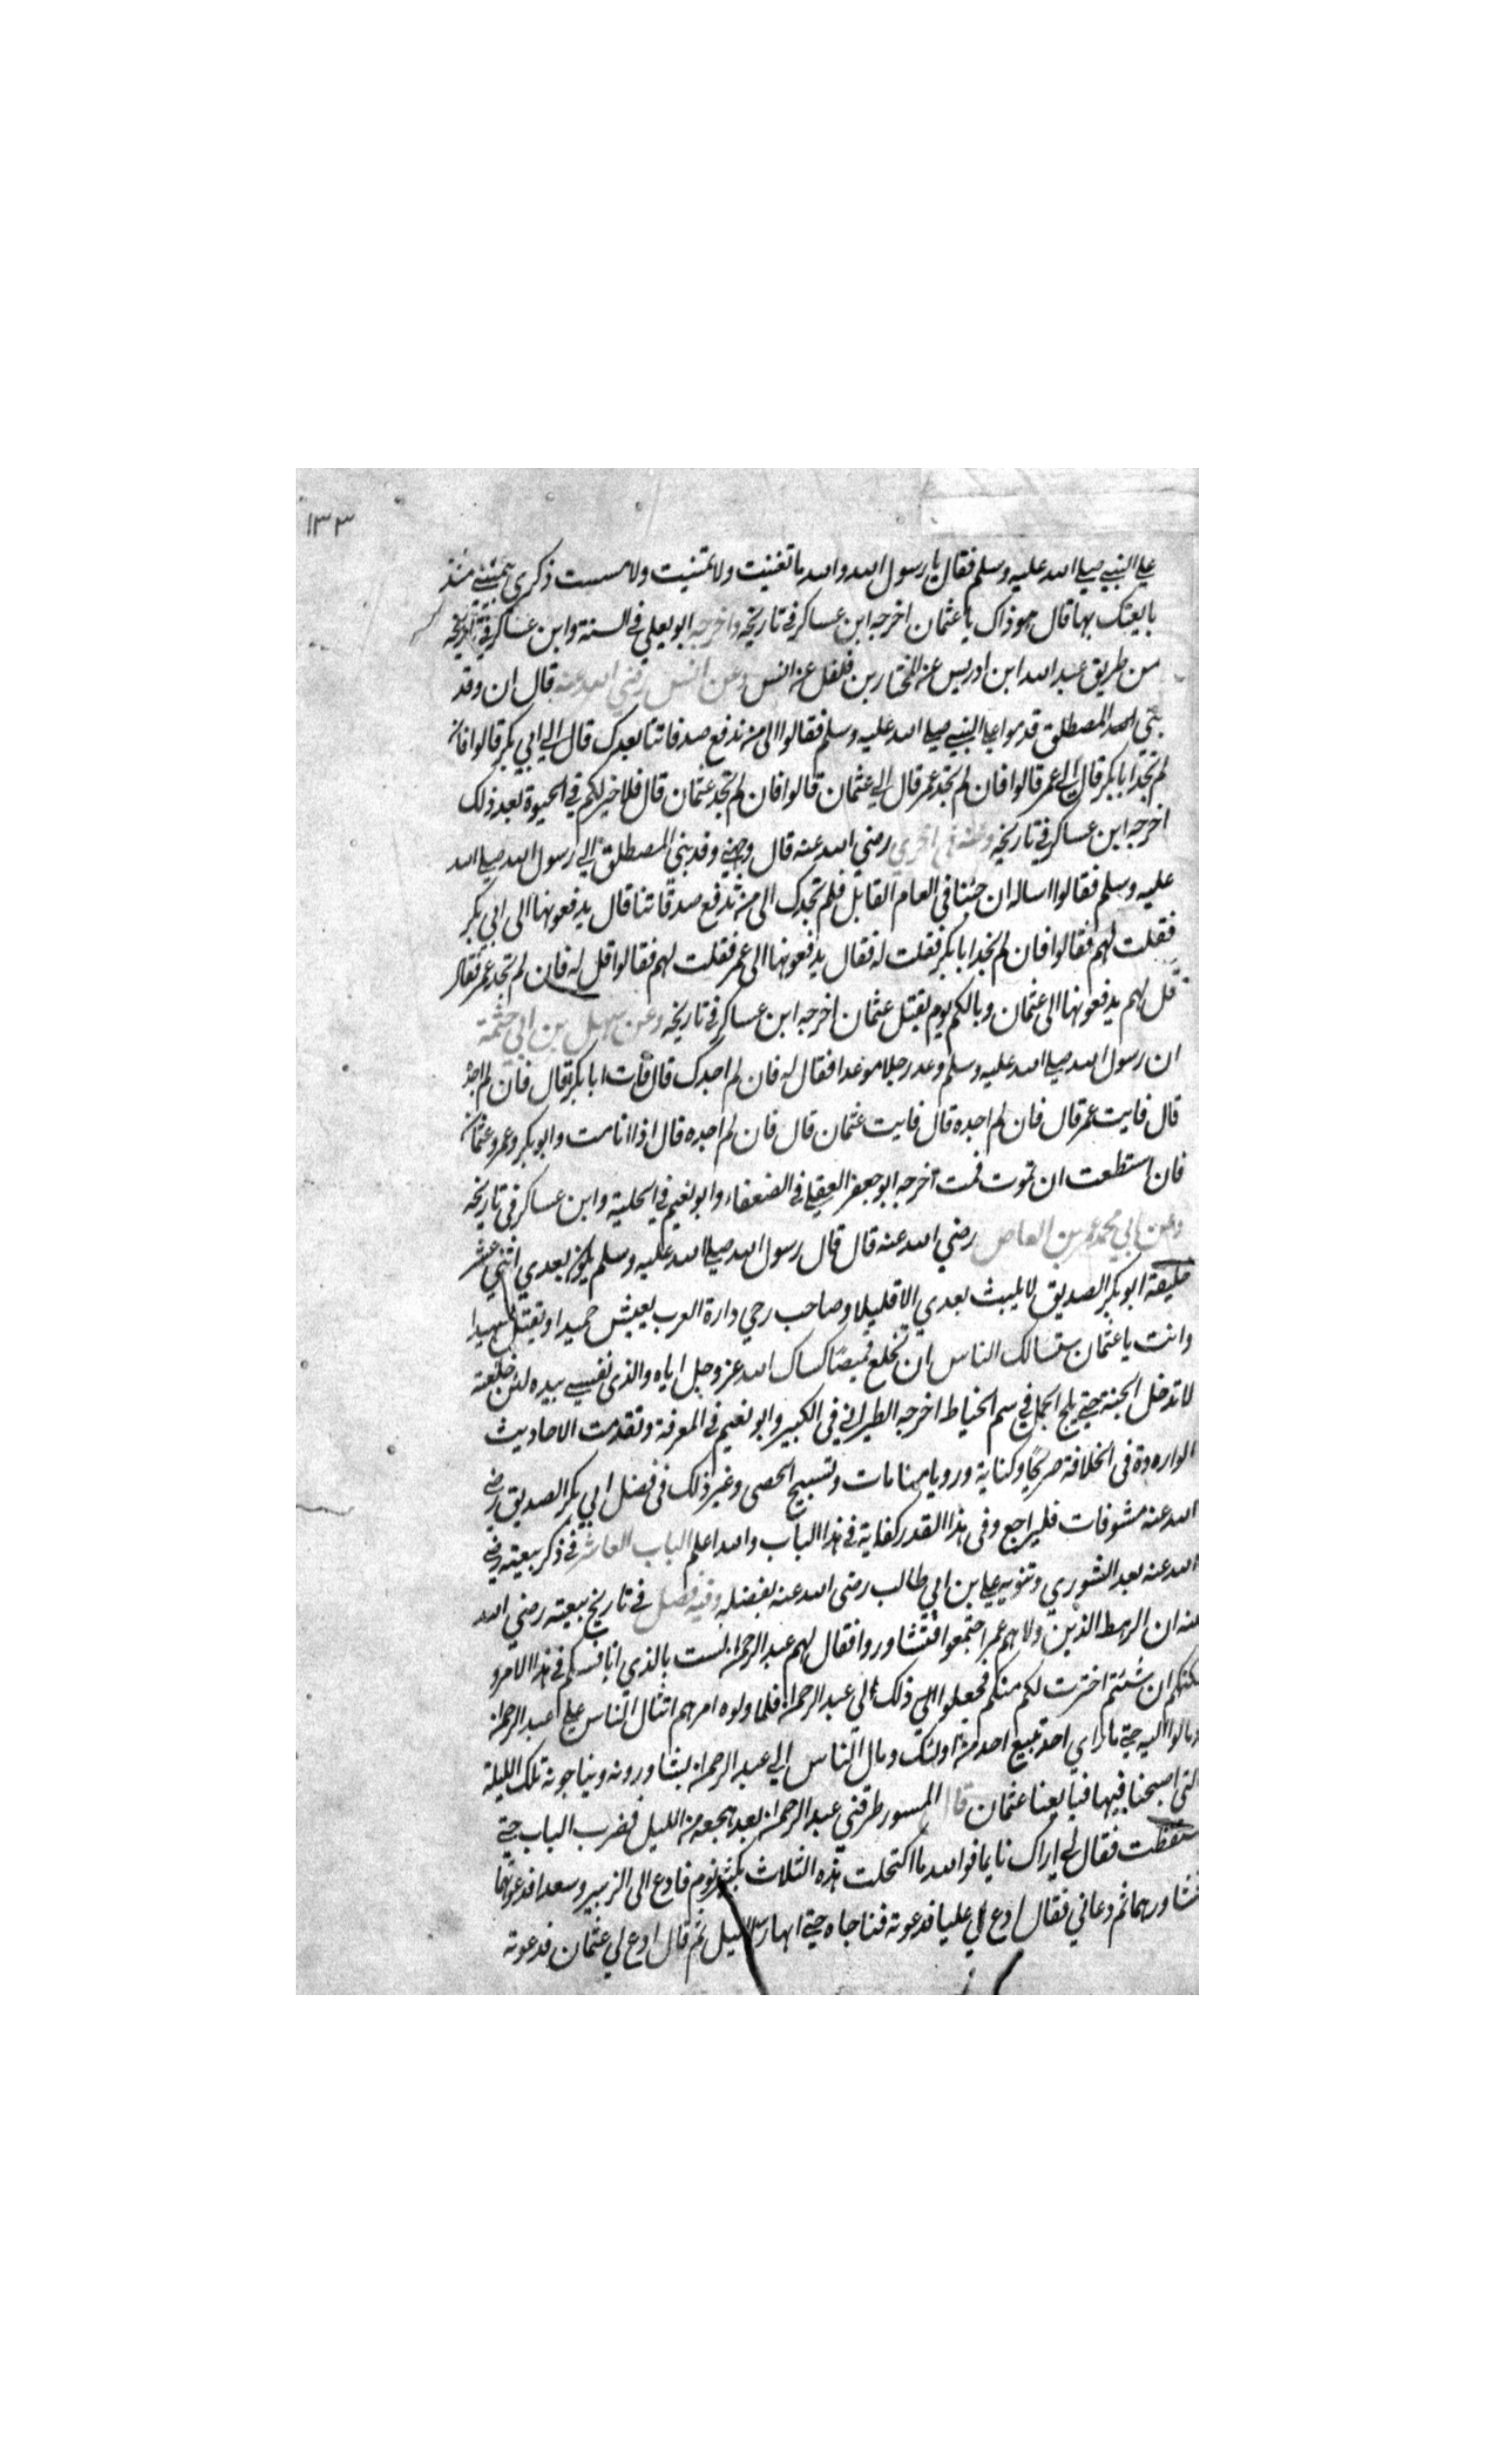 ١٣٣
علي النبي صلي الله عليه وسلم فقال يا رسول الله والله ما تغنيت ولا تمنيت ولا مسست ذكري بيميني منذ
بايعتك بها قال هو ذاك يا عثمان اخرجه ابن عساكر في تاريخه واخرجه ابو يعلي في السنة وابن عساكر في تاريخه
من طريق عبد الله ابن ادريس عن المختار بن فلفل عن انس وعن انس رضي الله عنه قال ان وفد
بني المصطلق قدموا علي النبي صلي الله عليه وسلم فقالوا الي من ندفع صدقاتنا بعدك قال الي ابي بكر قالوا فان
لم نجد ابا بكر قال الي عمر قالوا فان لم نجد عمر قال الي عثمان قالوا فان لم نجد عثمان قال فلا خير لكم في الحيوة بعد ذلك
اخرجه ابن عساكر في تاريخه وعنه في اخري رضي الله عنه قال وجهني وفد بني المصطلق الي رسول الله صلي الله
عليه وسلم فقالوا اساله ان جئنا في العام القابل فلم نجدك الي من ندفع صدقاتنا قال يدفعونها الي ابي بكر
فقلت لهم فقالوا فان لم نجد ابا بكر فقلت له فقال يدفعونها الي عمر فقلت لهم فقالوا قل له فان لم نجد عمر فقال
قل لهم يدفعونها الي عثمان وبالكم يوم يقتل عثمان اخرجه ابن عساكر في تاريخه وعن سهل بن ابي حثمة
ان رسول الله صلي الله عليه وسلم وعد رجلا موعدا فقال له فان لم اجدك قال فات ابا بكر قال فان لم اجده
قال فايت عمر قال فان لم اجده قال فايت عثمان قال فان لم اجده قال اذا انا مت وابو بكر وعمر وعثمان
فان استطعت ان تموت فمت اخرجه ابو جعفر العقيلي في الضعفاء وابو نعيم في الحلية وابن عساكر في تاريخه
وعن ابي محمد عمر بن العاص رضي الله عنه قال قال رسول الله صلي الله عليه وسلم يكون بعدي اثني عشر
خليفة ابو بكر الصديق لا يلبث بعدي الا قليلا وصاحب رحي دارة العرب يعيش حميدا ويقتل شهيدا
وانت يا عثمان ستسالك الناس ان تخلع قميصًا كساك الله عز وجل اياه والذي نفسي بيده لئن خلعته
لا تدخل الجنة حتي يلج الجمل في سم الخياط اخرجه الطبراني في الكبير وابو نعيم في المعرفة وتقدمت الاحاديث
الواردة في الخلافة صريحًا وكناية ورويا منامات وتسبيح الحصي وغير ذلك في فضل ابي بكر الصديق رضي
الله عنه مشوفات فليراجع وفي هذا القدر كفاية في هذا الباب والله اعلم الباب العاشر في ذكر بيعته رضي
الله عنه بعد الشوري وتنويه علي بن ابي طالب رضي الله عنه بفضله وفيه فصل في تاريخ بيعته رضي الله
عنه ان الرهط الذين ولاهم عمر اجتمعوا فتشاوروا فقال لهم عبد الرحمن لست بالذي انافسكم في هذا الامر و
لكنكم ان شئتم اخترت لكم منكم فجعلوا ذلك الي عبد الرحمن فلما ولوه امرهم انثال الناس علي عبد الرحمن
ومالوا اليه حتي ما راي احد تبيع احد من اولئك ومال الناس الي عبد الرحمن يشاورونه ويناجونه تلك الليلة
التي اصبحنا فيها فبايعنا عثمان قال المسور طرقني عبد الرحمن بعد هجعه من الليل فضرب الباب حتي
استيقظت فقال لي اراك نايما فوالله ما اكتحلت هذه الثلاث بكثير نوم فادع الي الزبير وسعدا فدعوتهما
فشاورهما ثم دعاني فقال ادع لي عليا فدعوته فناجاه حتي ابهار الليل ثم قال ادع لي عثمان فدعوته